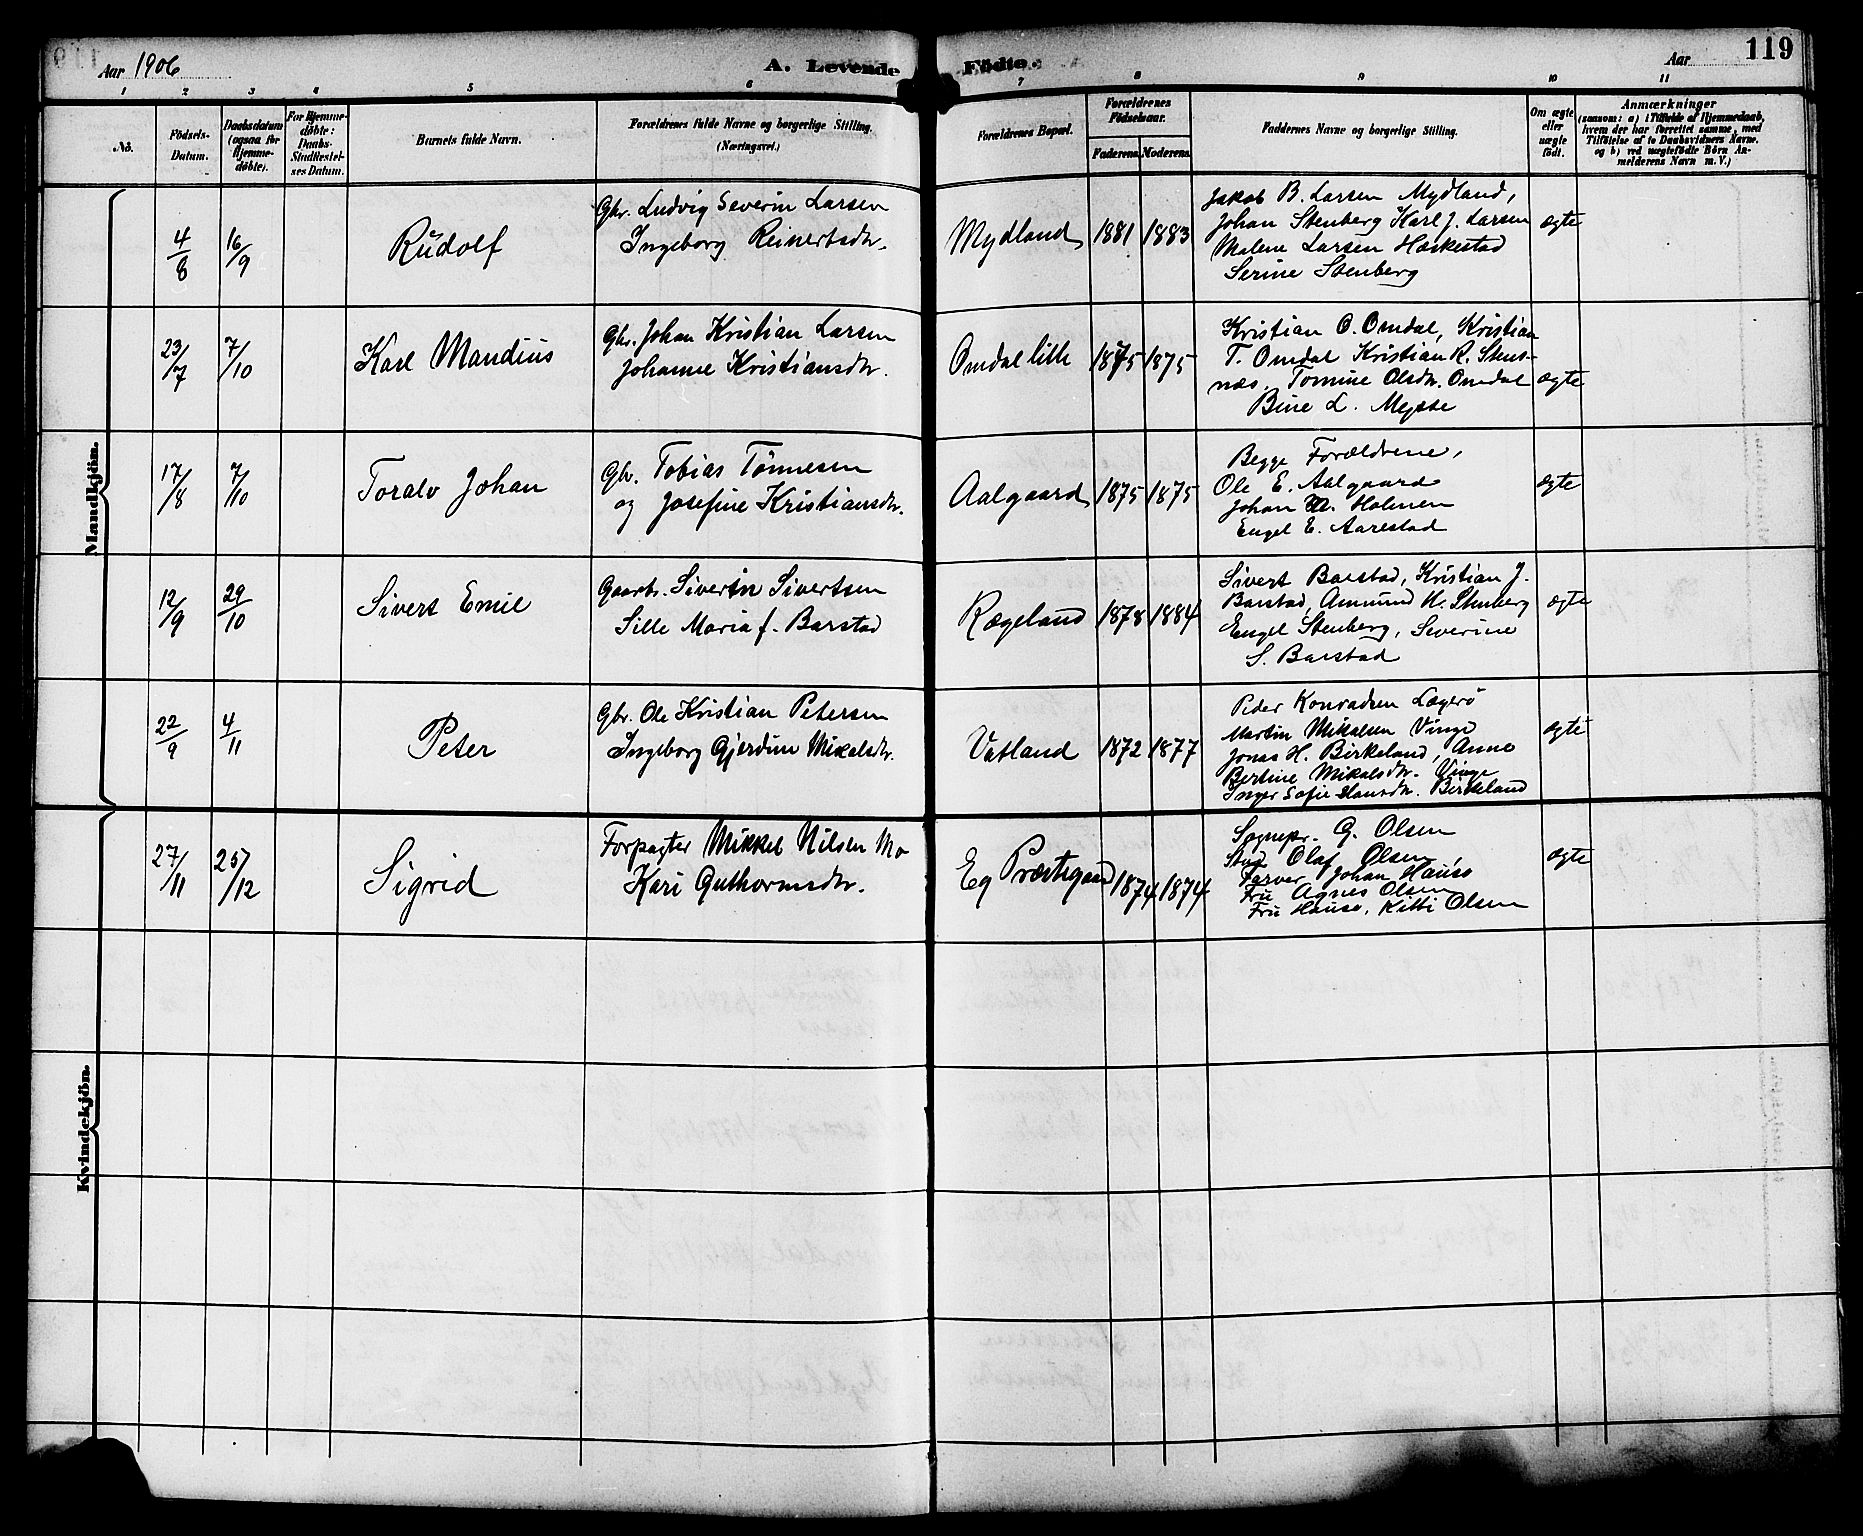 Aar 1906
A. Levende Födte.
Aar
119
1 2 3 4 5 6 7 8 9 10 11
No.
Födsels-
Datum.
Daabsdatum
(ogsaa for
Hjemme-
døbte).
For Hjemme-
døbte:
Daabs-
Stadfæstel-
ses Datum.
Barnets fulde Navn.
Forældrenes fulde Navne og borgerlige Stilling.
(Næringsvei.)
Forældrenes Bopæl.
Forældrenes
Födselsaar.
Faderens.
Moderens.
Faddernes Navne og borgerlige Stilling.
Om ægte
eller
uægte
födt.
Anmærkninger
(saasom: a) i Tilfælde af Hjemmedaab,
hvem der har forrettet samme, med
Tilföielse af to Daabsvidners Navne,
og b) ved uægtefödte Börn An-
melderens Navn m. V.)
Mandkjön.
4/8 16/9
Rudolf
Gbr. Ludvig Severin Larsen
Ingeborg Reinertsdtr.
Mydland 1881 1883
Jakob B. Larsen Mydland,
Johan Stenberg Karl J. Larsen
Malene Larsen Haskestad
Serine Stenberg
ægte
23/7 7/10
Karl Mandius
Gbr. Johan Kristian Larsen
Johanne Kristiansdtr.
Omdal lille 1875 1875
Kristian O. Omdal, Kristian
T. Omdal Kristian R. Stens-
næs, Tomine Olsdtr. Omdal
Bine L. Mysse
ægte
17/8 7/10
Toralv Johan
Gbr. Tobias Tönnesen
og Josefine Kristiansdtr.
Aalgaard 1875 1875
Begge Forældrene,
Ole E. Aalgaard
Johan Holmen
Engel E. Aarestad
ægte
12/9 29/10
Sivert Emil
Gaardbr. Sivertin Sivertsen
Sille Maria f. Barstad
Rægeland 1878 1884
Sivert Barstad, Kristian J.
Barstad, Amund H. Stenberg
Engel Stenberg, Severine
S. Barstad
ægte
22/9 4/11
Peter
Gbr. Ole Kristian Petersen
Ingeborg Gjerdine Mikalsdtr.
Vatland 1872 1877
Peder Konradsen Lægerö
Martin Mikalsen Vinge
Jonas H. Birkeland, Anne
Bertine Mikalsdtr. Vinge
Inger Sofie Hansdtr. Birkeland
ægte
Kvindekjön.
27/11 25/12
Sigrid
Forpagter Mikkel Nilsen Mo
Kari Guthormsdtr.
Eg Præstegaard 1874 1874
Sognepr. G. Olsen
Stud Olaf Olsen,
Farver Johan Hauso
Fru Agnes Olsen
Fru Hauso, Kitti Olsen
ægte